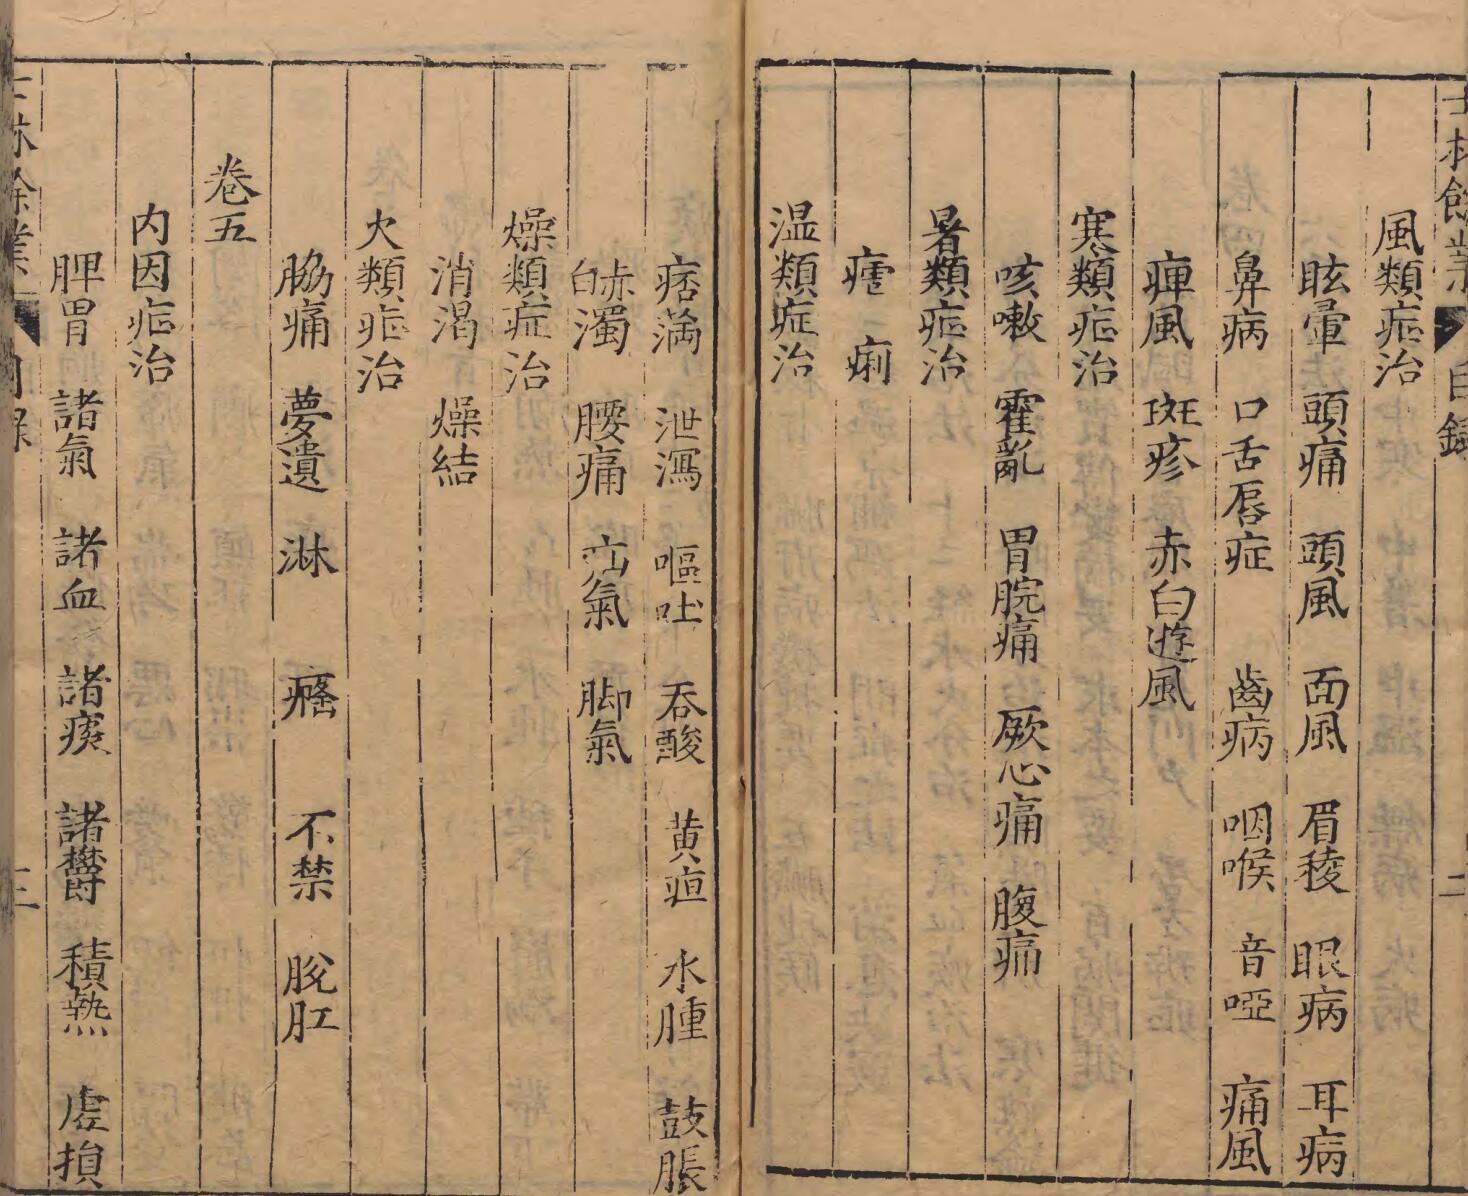 士林餘業 目錄 二
風類症治
眩暈 頭痛 頭風 面風 眉稜 眼病 耳病
鼻病 口舌唇症 齒病 咽喉 音啞 痛風
痺風 斑疹 赤白遊風
寒類症治
咳嗽 霍亂 胃脘痛 厥心痛 腹痛
暑類症治
瘧 痢
温類症治
痞滿 泄瀉 嘔吐 吞酸 黄疸 水腫 鼓脹
赤白濁 腰痛 疝氣 脚氣
燥類症治
消渴 燥結
火類症治
脇痛 夢遺 淋 癃 不禁 脫肛
卷五
内因症治
脾胃 諸氣 諸血 諸痰 諸鬱 積熱 虛損
士林餘業 目錄 三